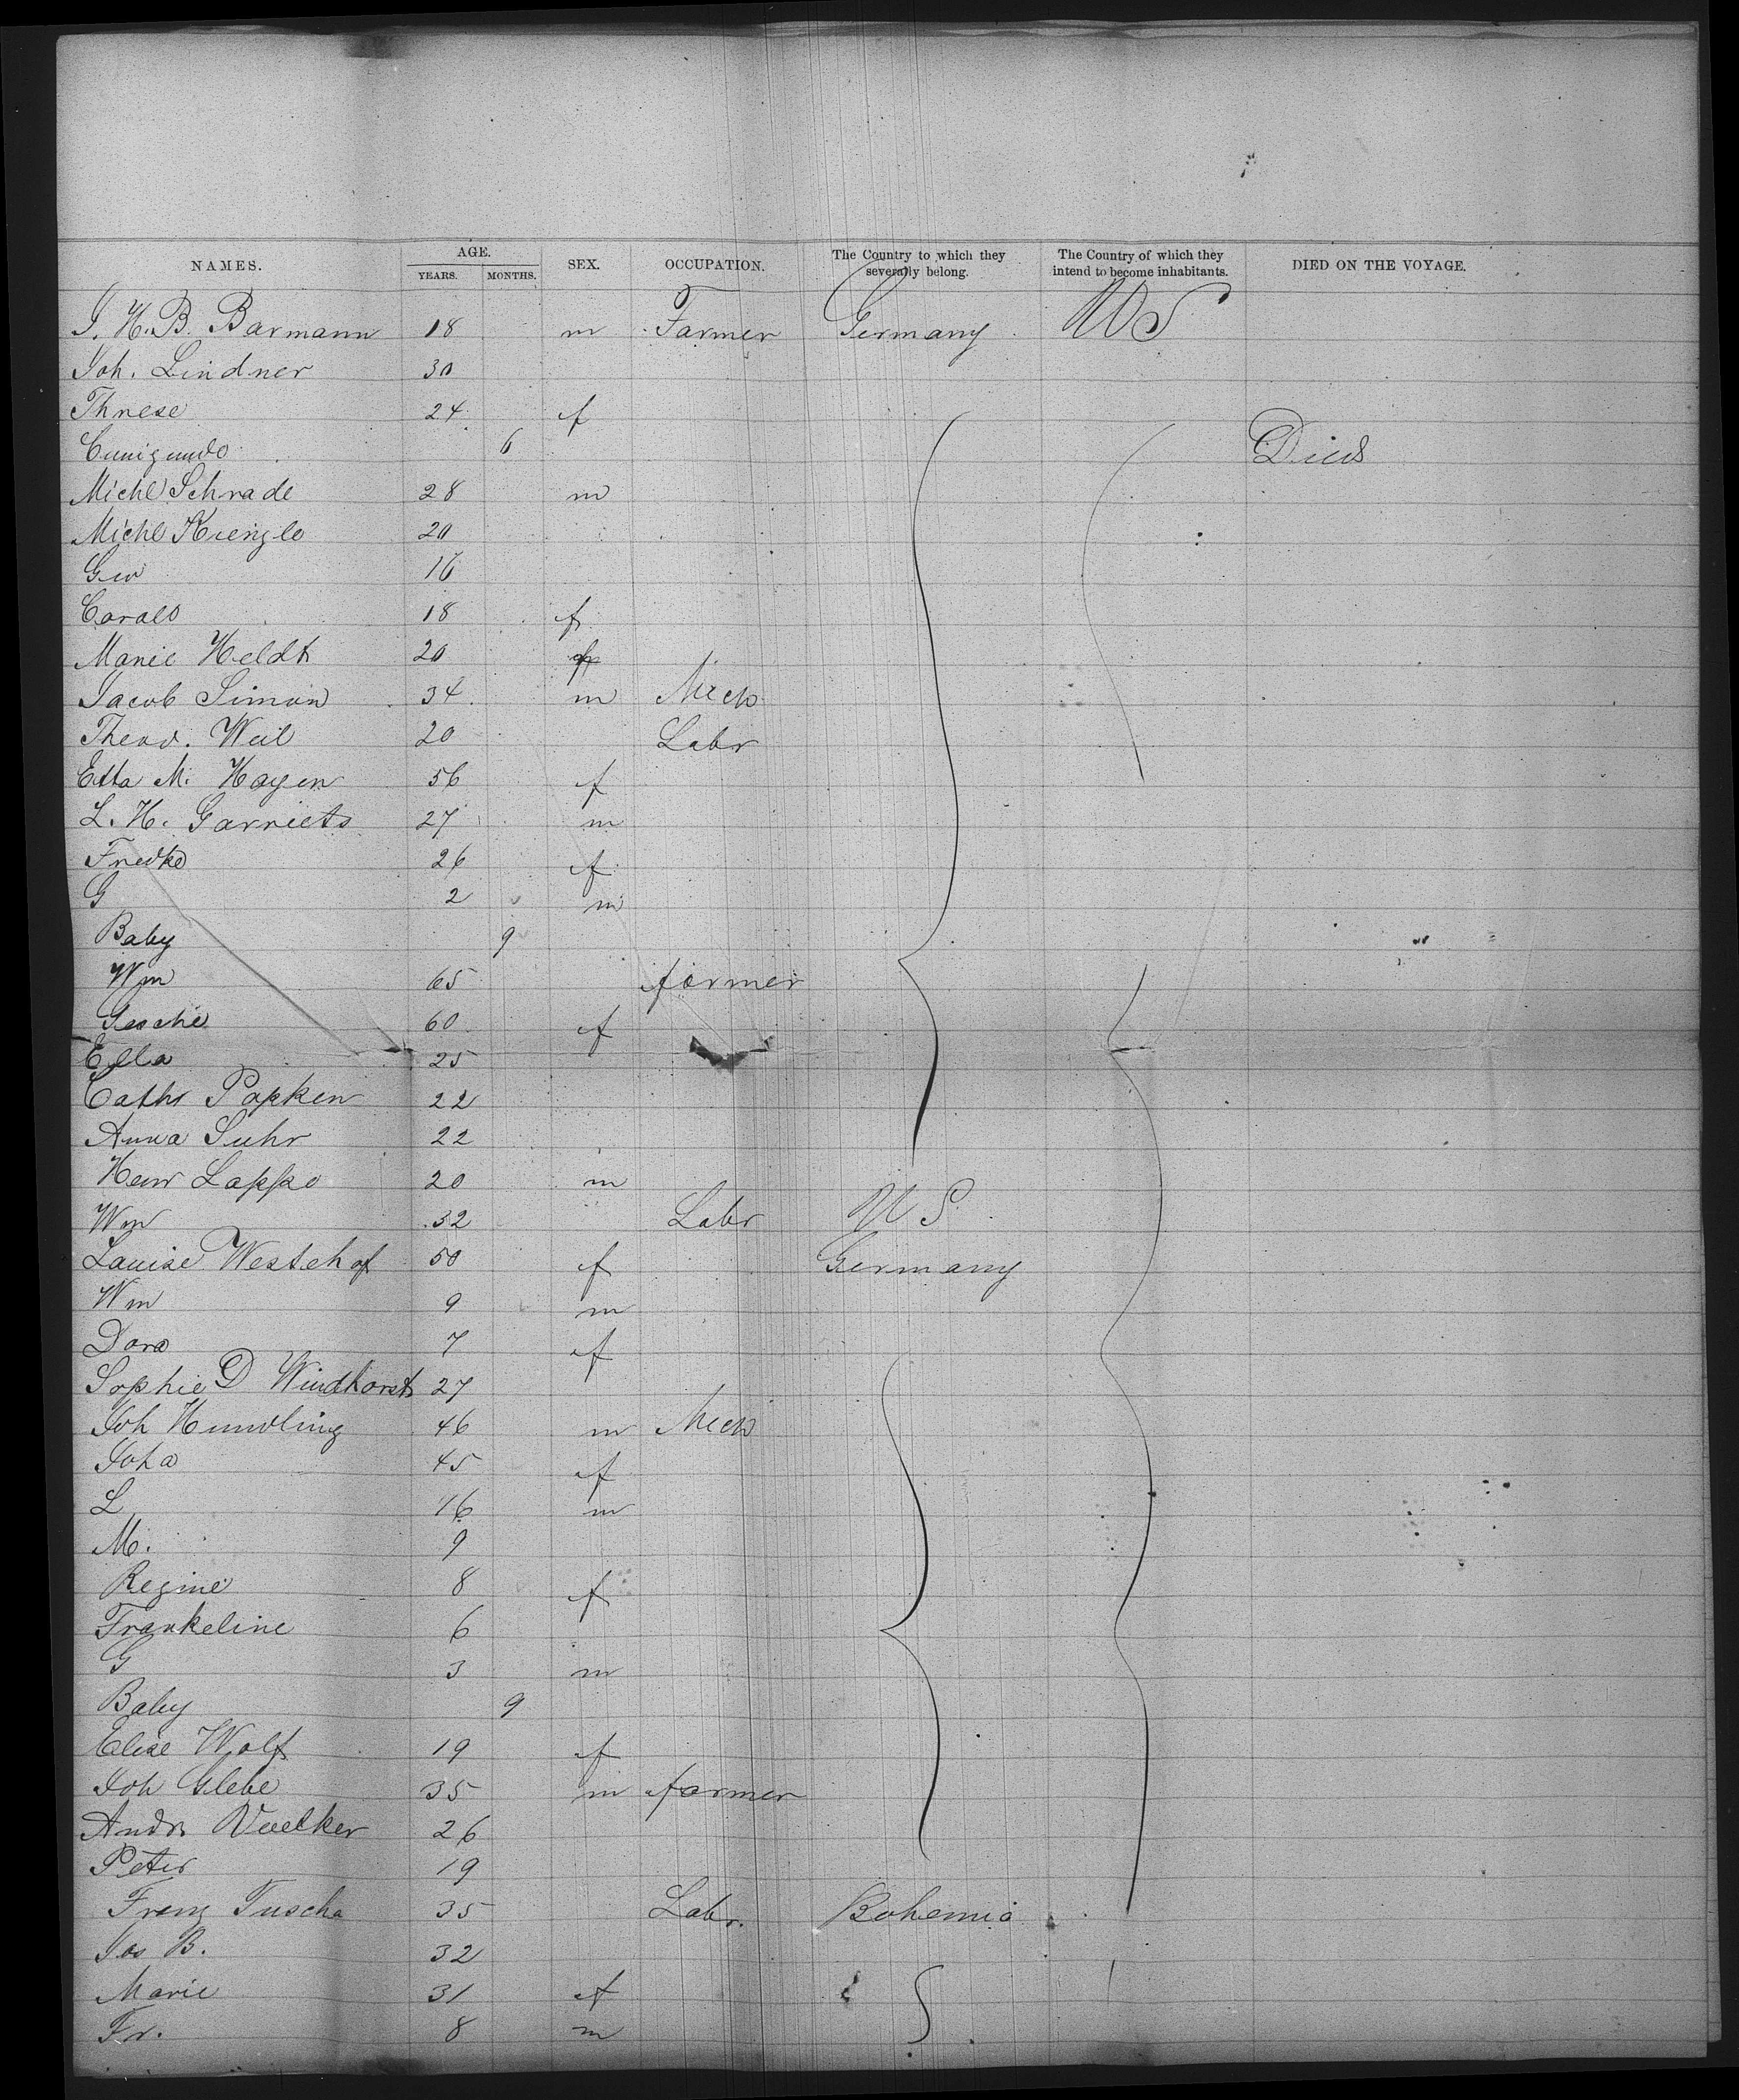 NAMES. AGE. YEARS. MONTHS. SEX. OCCUPATION. The Country to which they severally belong. The Country of which they intend to become inhabitants. DIED ON THE VOYAGE.
J. H. B. Barmann 18 m Farmer Germany US
Joh. Lindner 30
Threse 24 f
Cunigunde 6 Died
Michl Schrade 28 m
Michl Kuenzle 20
Geo 16
Carole 18 f
Marie Heldt 20
Jacob Simon 34 m Mech
Theod. Weil 20 Labr
Etta M. Hayen 56 f
L. H. Garriets 27 m
Fredke 26 f
G 2 m
Baby 9
Wm 65 farmer
Gesche 60 f
Ella 25
Cathr Popken 22
Anna Suhr 22
Henr Lappe 20 m
Wm 32 Labr US
Louise Westehof 50 f Germany
Wm 9 m
Dora 7 f
Sophie D Windhorst 27
Joh Hundling 46 m Mech
Joha 45 f
L 16 m
M. 9
Regine 8 f
Frankeline 6
G 3 m
Baby 9
Elise Wolf 19 f
Joh Glebe 35 m farmer
Andr Voelker 26
Peter 19
Franz Tuscha 35 Labr. Bohemia
Jos B. 32
Marie 31 f
Fr. 8 m